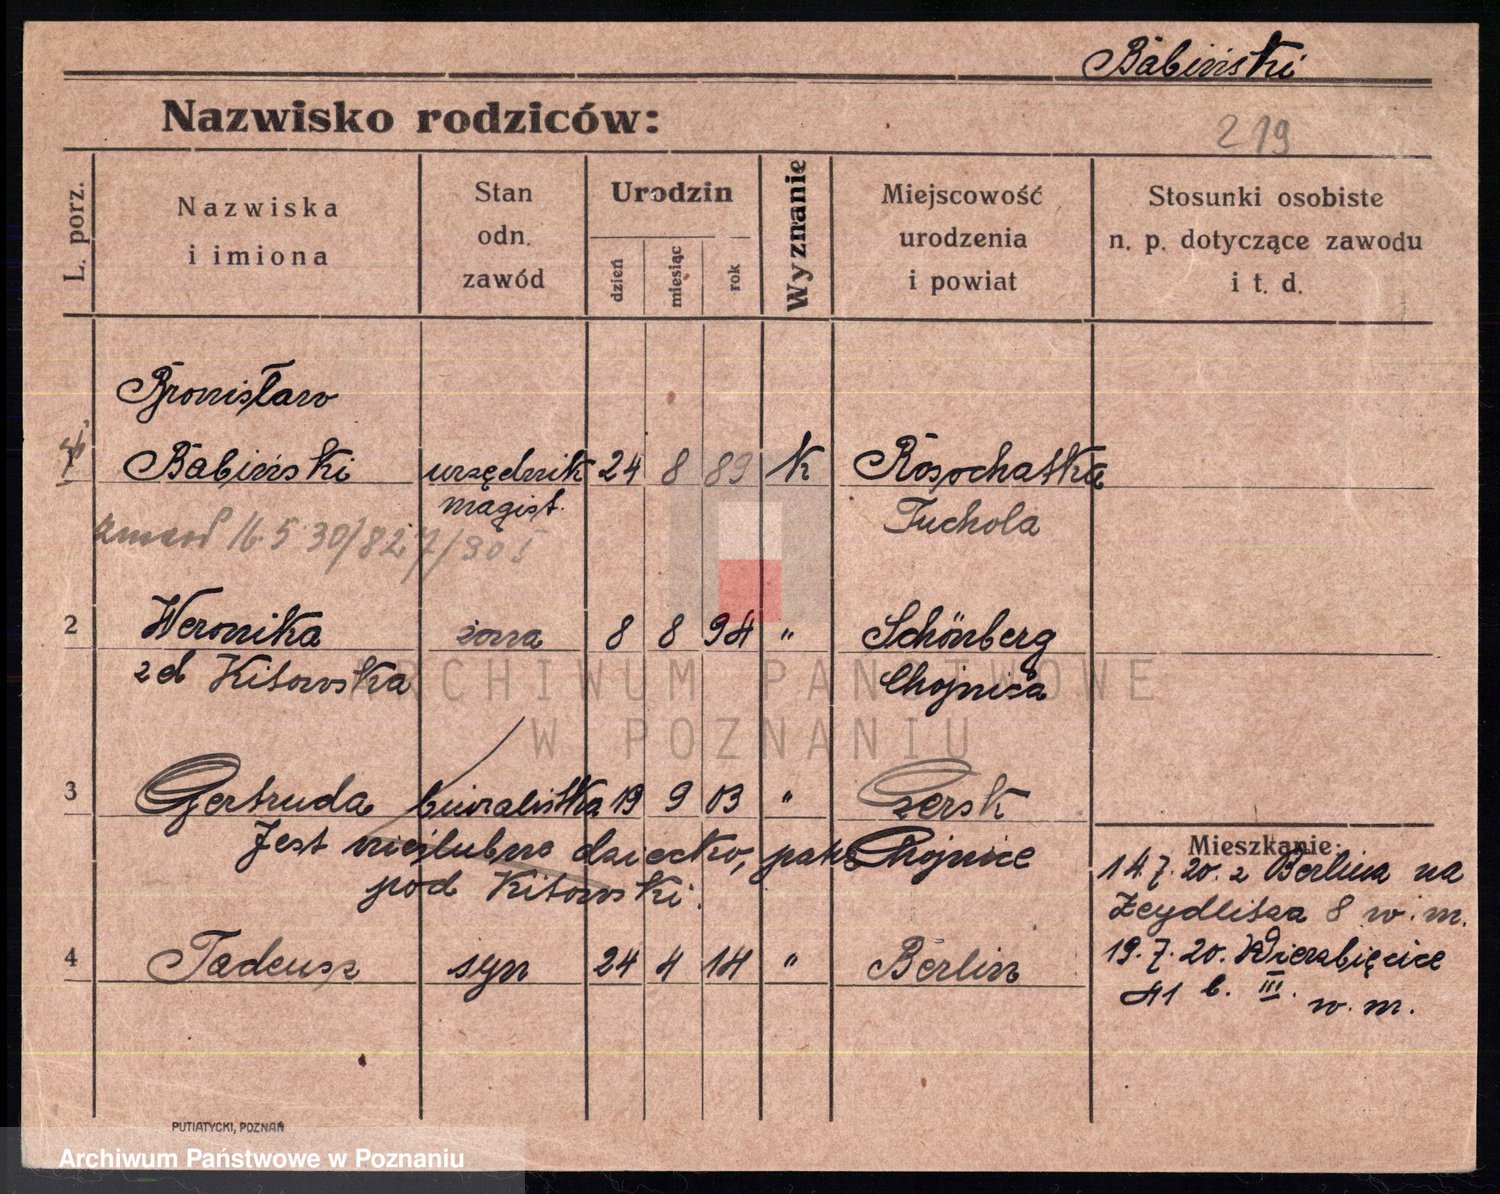 Babiński
Nazwisko rodziców:
219
L. porz.
Nazwiska
i imiona
Stan
odn.
zawód
Urodzin
dzień
miesiąc
rok
Wyznanie
Miejscowość
urodzenia
i powiat
Stosunki osobiste
n. p. dotyczące zawodu
i t. d.
Bronisław
1 Babiński urzędnik 24 8 89 k Rosochatka
magist. Tuchola
zmarł 16.5.30/827/30
2 Weronika żona 8 8 94 " Schönberg
zd Kitowska Chojnice
3 Gertruda biuralistka 19 9 03 " Czersk
Jest nieślubne dziecko, patrz Chojnice
pod Kitowski.
Mieszkanie:
14.7.20. z Berlina na
Zeydlitza 8 w. m.
4 Tadeusz syn 24 4 14 " Berlin
19.7.20. Wierzbięcice
41 b. III. w. m.
PUTIATYCKI, POZNAŃ
ARCHIWUM PAŃSTWOWE
W POZNANIU
Archiwum Państwowe w Poznaniu